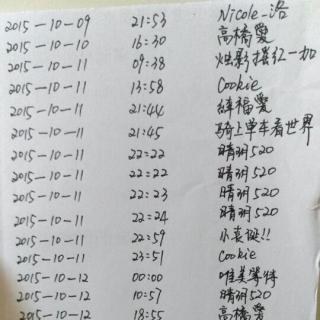 2015-10-09 21:53 Nicole_洛
2015-10-10 16:30 高橋愛
2015-10-11 09:38 烛影摇红一加
2015-10-11 13:58 Cookie
2015-10-11 21:44 緈福愛
2015-10-11 21:45 骑上单车看世界
2015-10-11 22:22 晴玥520
2015-10-11 22:22 晴玥520
2015-10-11 22:23 晴玥520
2015-10-11 22:24 晴玥520
2015-10-11 22:59 小袁诞!!
2015-10-11 23:51 Cookie
2015-10-12 00:00 唯美等待
2015-10-12 10:57 晴玥520
2015-10-12 18:55 高橋愛